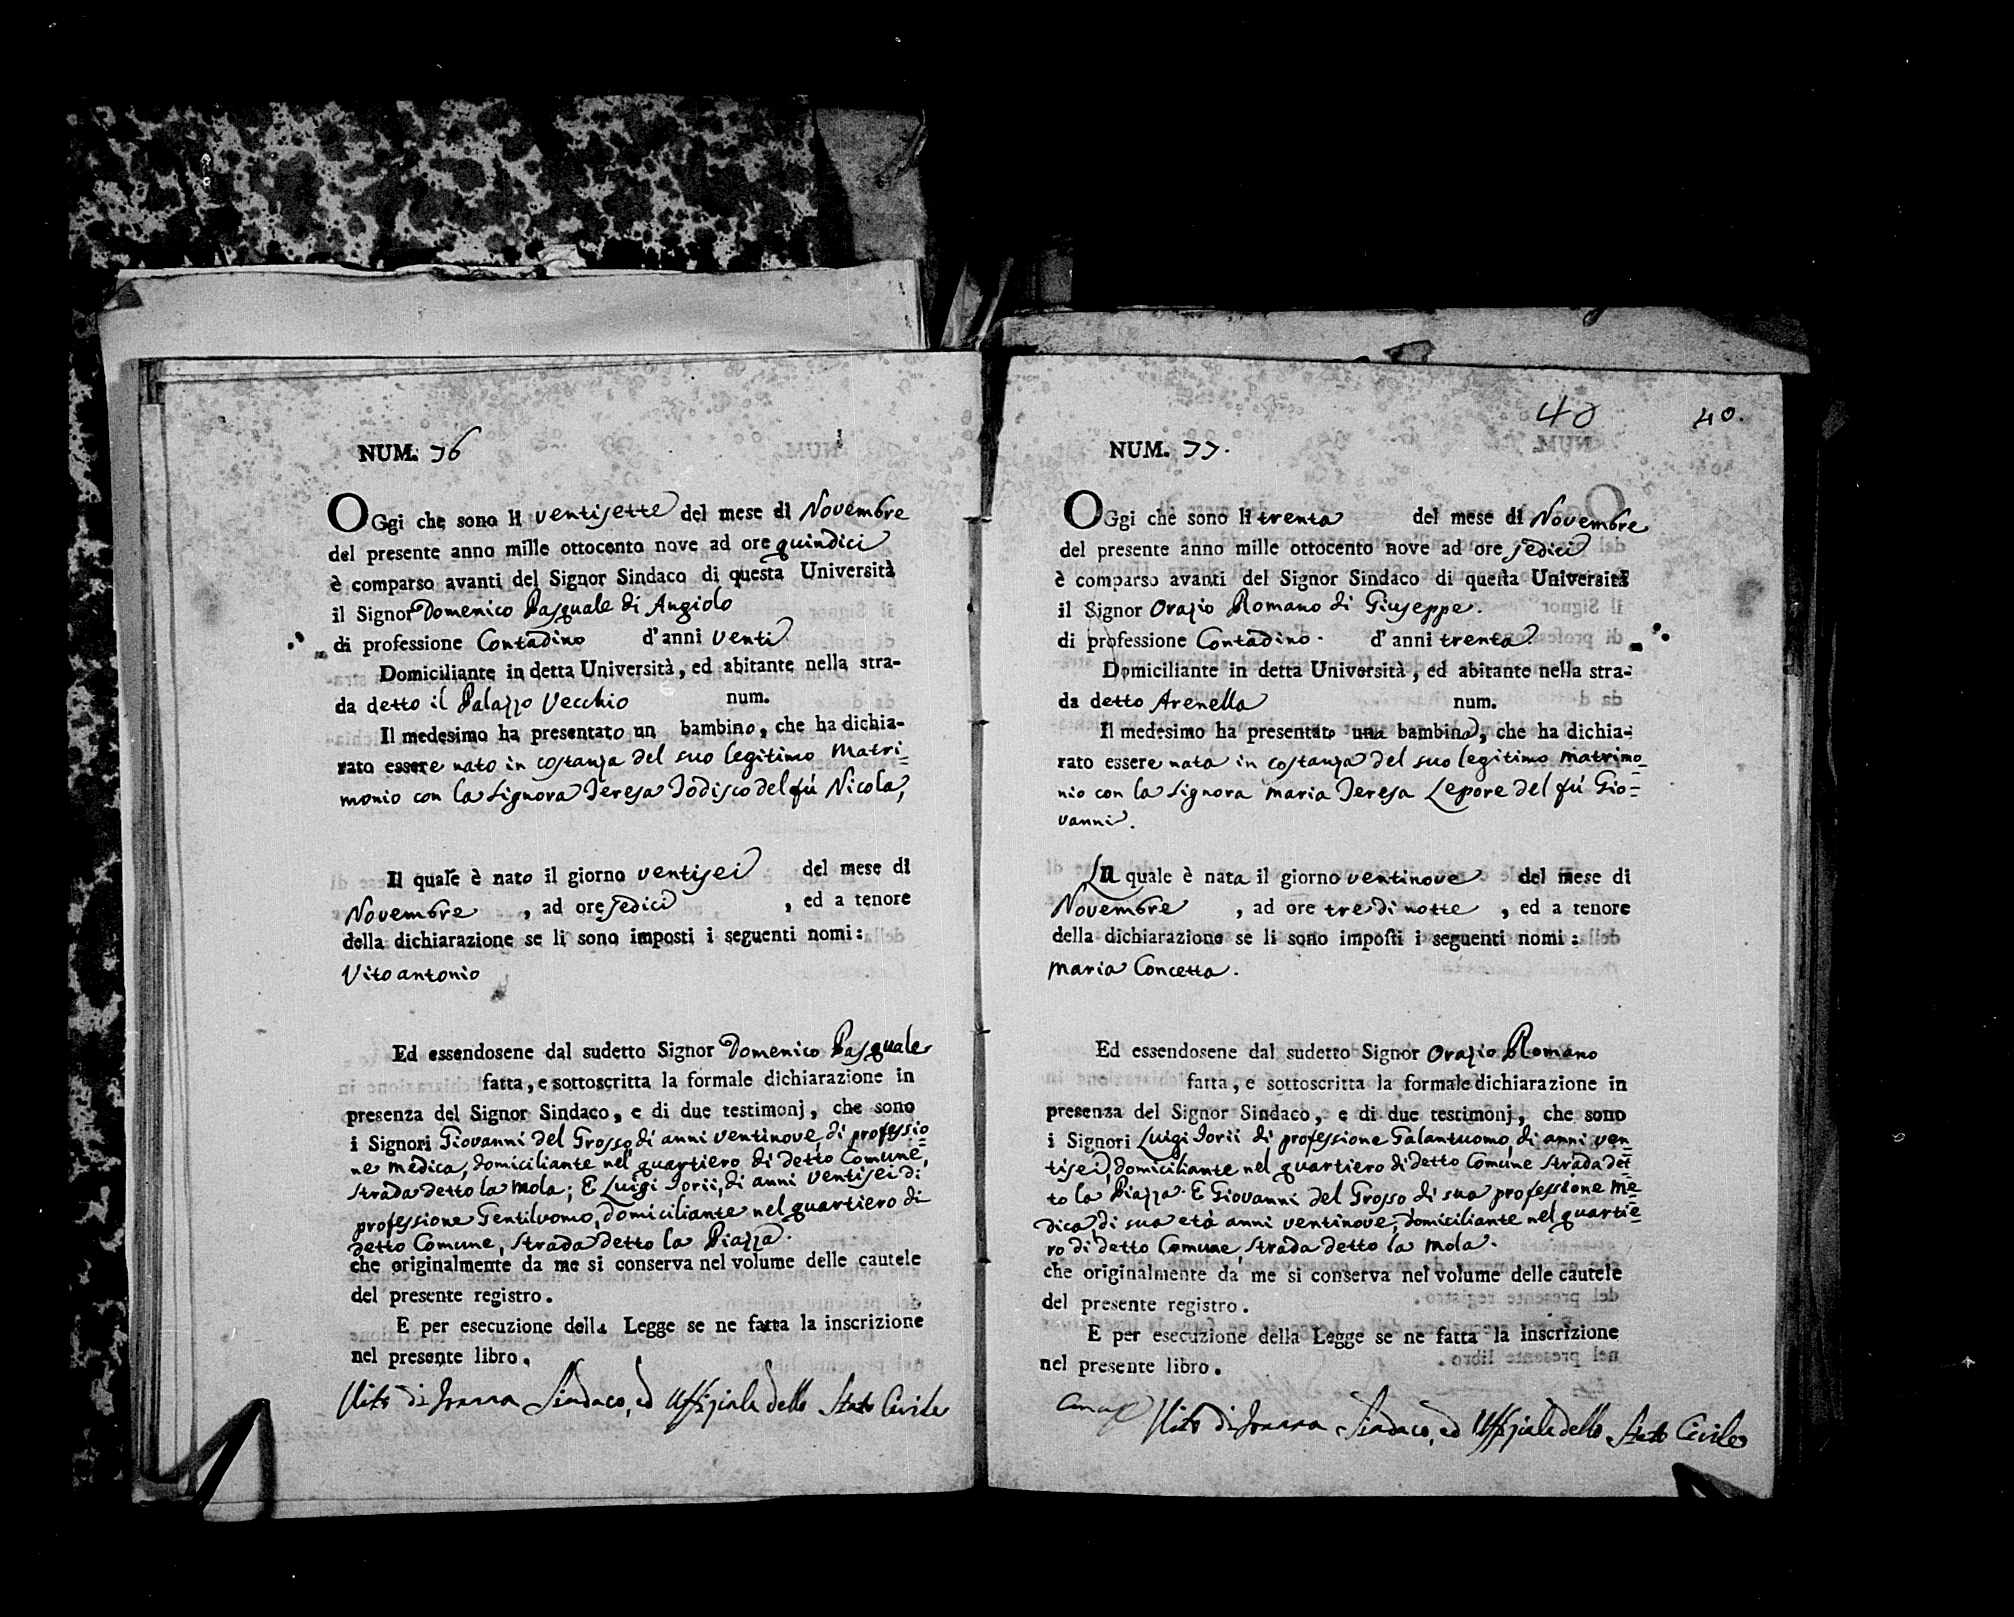 NUM. 76
OGgi che sono li ventisette del mese di Novembre
del presente anno mille ottocento nove ad ore quindici
è comparso avanti del Signor Sindaco di questa Università
il Signor Domenico Pasquale di Angiolo
di professione Contadino d'anni venti
Domiciliante in detta Università, ed abitante nella stra-
da detto il Palazzo Vecchio num.
Il medesimo ha presentato un bambino, che ha dichia-
rato essere nato in costanza del suo legitimo Matri=
monio con la Signora Teresa Iodisco del fú Nicola,
Il quale è nato il giorno ventisei del mese di
Novembre, ad ore sedici, ed a tenore
della dichiarazione se li sono imposti i seguenti nomi:
Vito antonio
Ed essendosene dal sudetto Signor Domenico Pasquale
fatta, e sottoscritta la formale dichiarazione in
presenza del Signor Sindaco, e di due testimonj, che sono
i Signori Giovanni del Grosso, di anni ventinove, di professio=
ne Medica, domiciliante nel quartiero di detto Comune,
strada detto la Mola; E Luigi Iorii, di anni ventisei di
professione Gentiluomo, domiciliante nel quartiero di
detto Comune, strada detto la Piazza.
che originalmente da me si conserva nel volume delle cautele
del presente registro.
E per esecuzione della Legge se ne fatta la inscrizione
nel presente libro.
Vito di Sindaco, ed Uffiziale dello Stato Civile
40 40.
NUM. 77.
OGgi che sono li trenta del mese di Novembre
del presente anno mille ottocento nove ad ore sedici
è comparso avanti del Signor Sindaco di questa Università
il Signor Orazio Romano di Giuseppe.
di professione Contadino. d'anni trenta.
Domiciliante in detta Università, ed abitante nella stra-
da detto Arenella num.
Il medesimo ha presentato una bambina, che ha dichia-
rato essere nata in costanza del suo legitimo Matrimo=
nio con la Signora Maria Teresa Lepore del fú Gio=
vanni.
La quale è nata il giorno ventinove del mese di
Novembre, ad ore tre di notte, ed a tenore
della dichiarazione se li sono imposti i seguenti nomi:
Maria Concetta.
Ed essendosene dal sudetto Signor Orazio Romano
fatta, e sottoscritta la formale dichiarazione in
presenza del Signor Sindaco, e di due testimonj, che sono
i Signori Luigi Iorii di professione Galantuomo, di anni ven=
tisei, domiciliante nel quartiero di detto Comune strada det=
to la Piazza. E Giovanni del Grosso di sua professione Me=
dica, di sua età anni ventinove, domiciliante nel quartie=
ro di detto Comune, strada detto la Mola.
che originalmente da me si conserva nel volume delle cautele
del presente registro.
E per esecuzione della Legge se ne fatta la inscrizione
nel presente libro.
Vito di Sindaco, ed Uffiziale dello Stato Civile